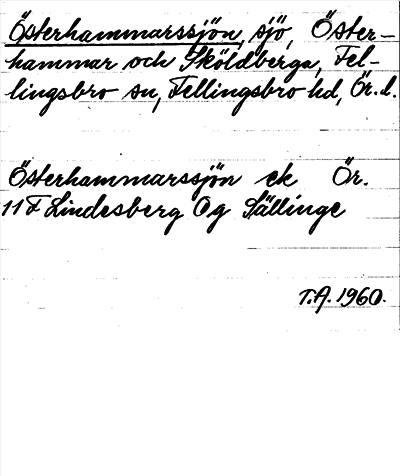 Österhammarssjön, sjö, Öster-
hammar och Sköldberga, Fel-
lingsbro sn, Fellingsbro hd, Ör.l.
Österhammarssjön ek Ör.
11 F Lindesberg Og Sällinge
T.A. 1960.